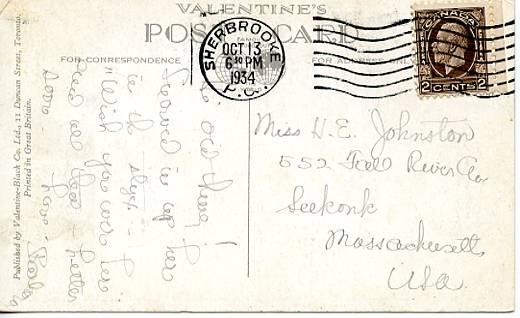 VALENTINE'S
POST CARD
FOR CORRESPONDENCE
FOR ADDRESS ONLY
SHERBROOKE
OCT 13
6 30 PM
1934
P.Q.
CANADA
2 CENTS 2
Published by Valentine-Black Co. Ltd., 11 Duncan Street, Toronto.
Printed in Great Britain.
old thing!
up here
in the
"Wish you were here"
and all that - better
Love -
Miss H. E. Johnston
552 Fall River Ave
Seekonk
Massachusetts
USA.